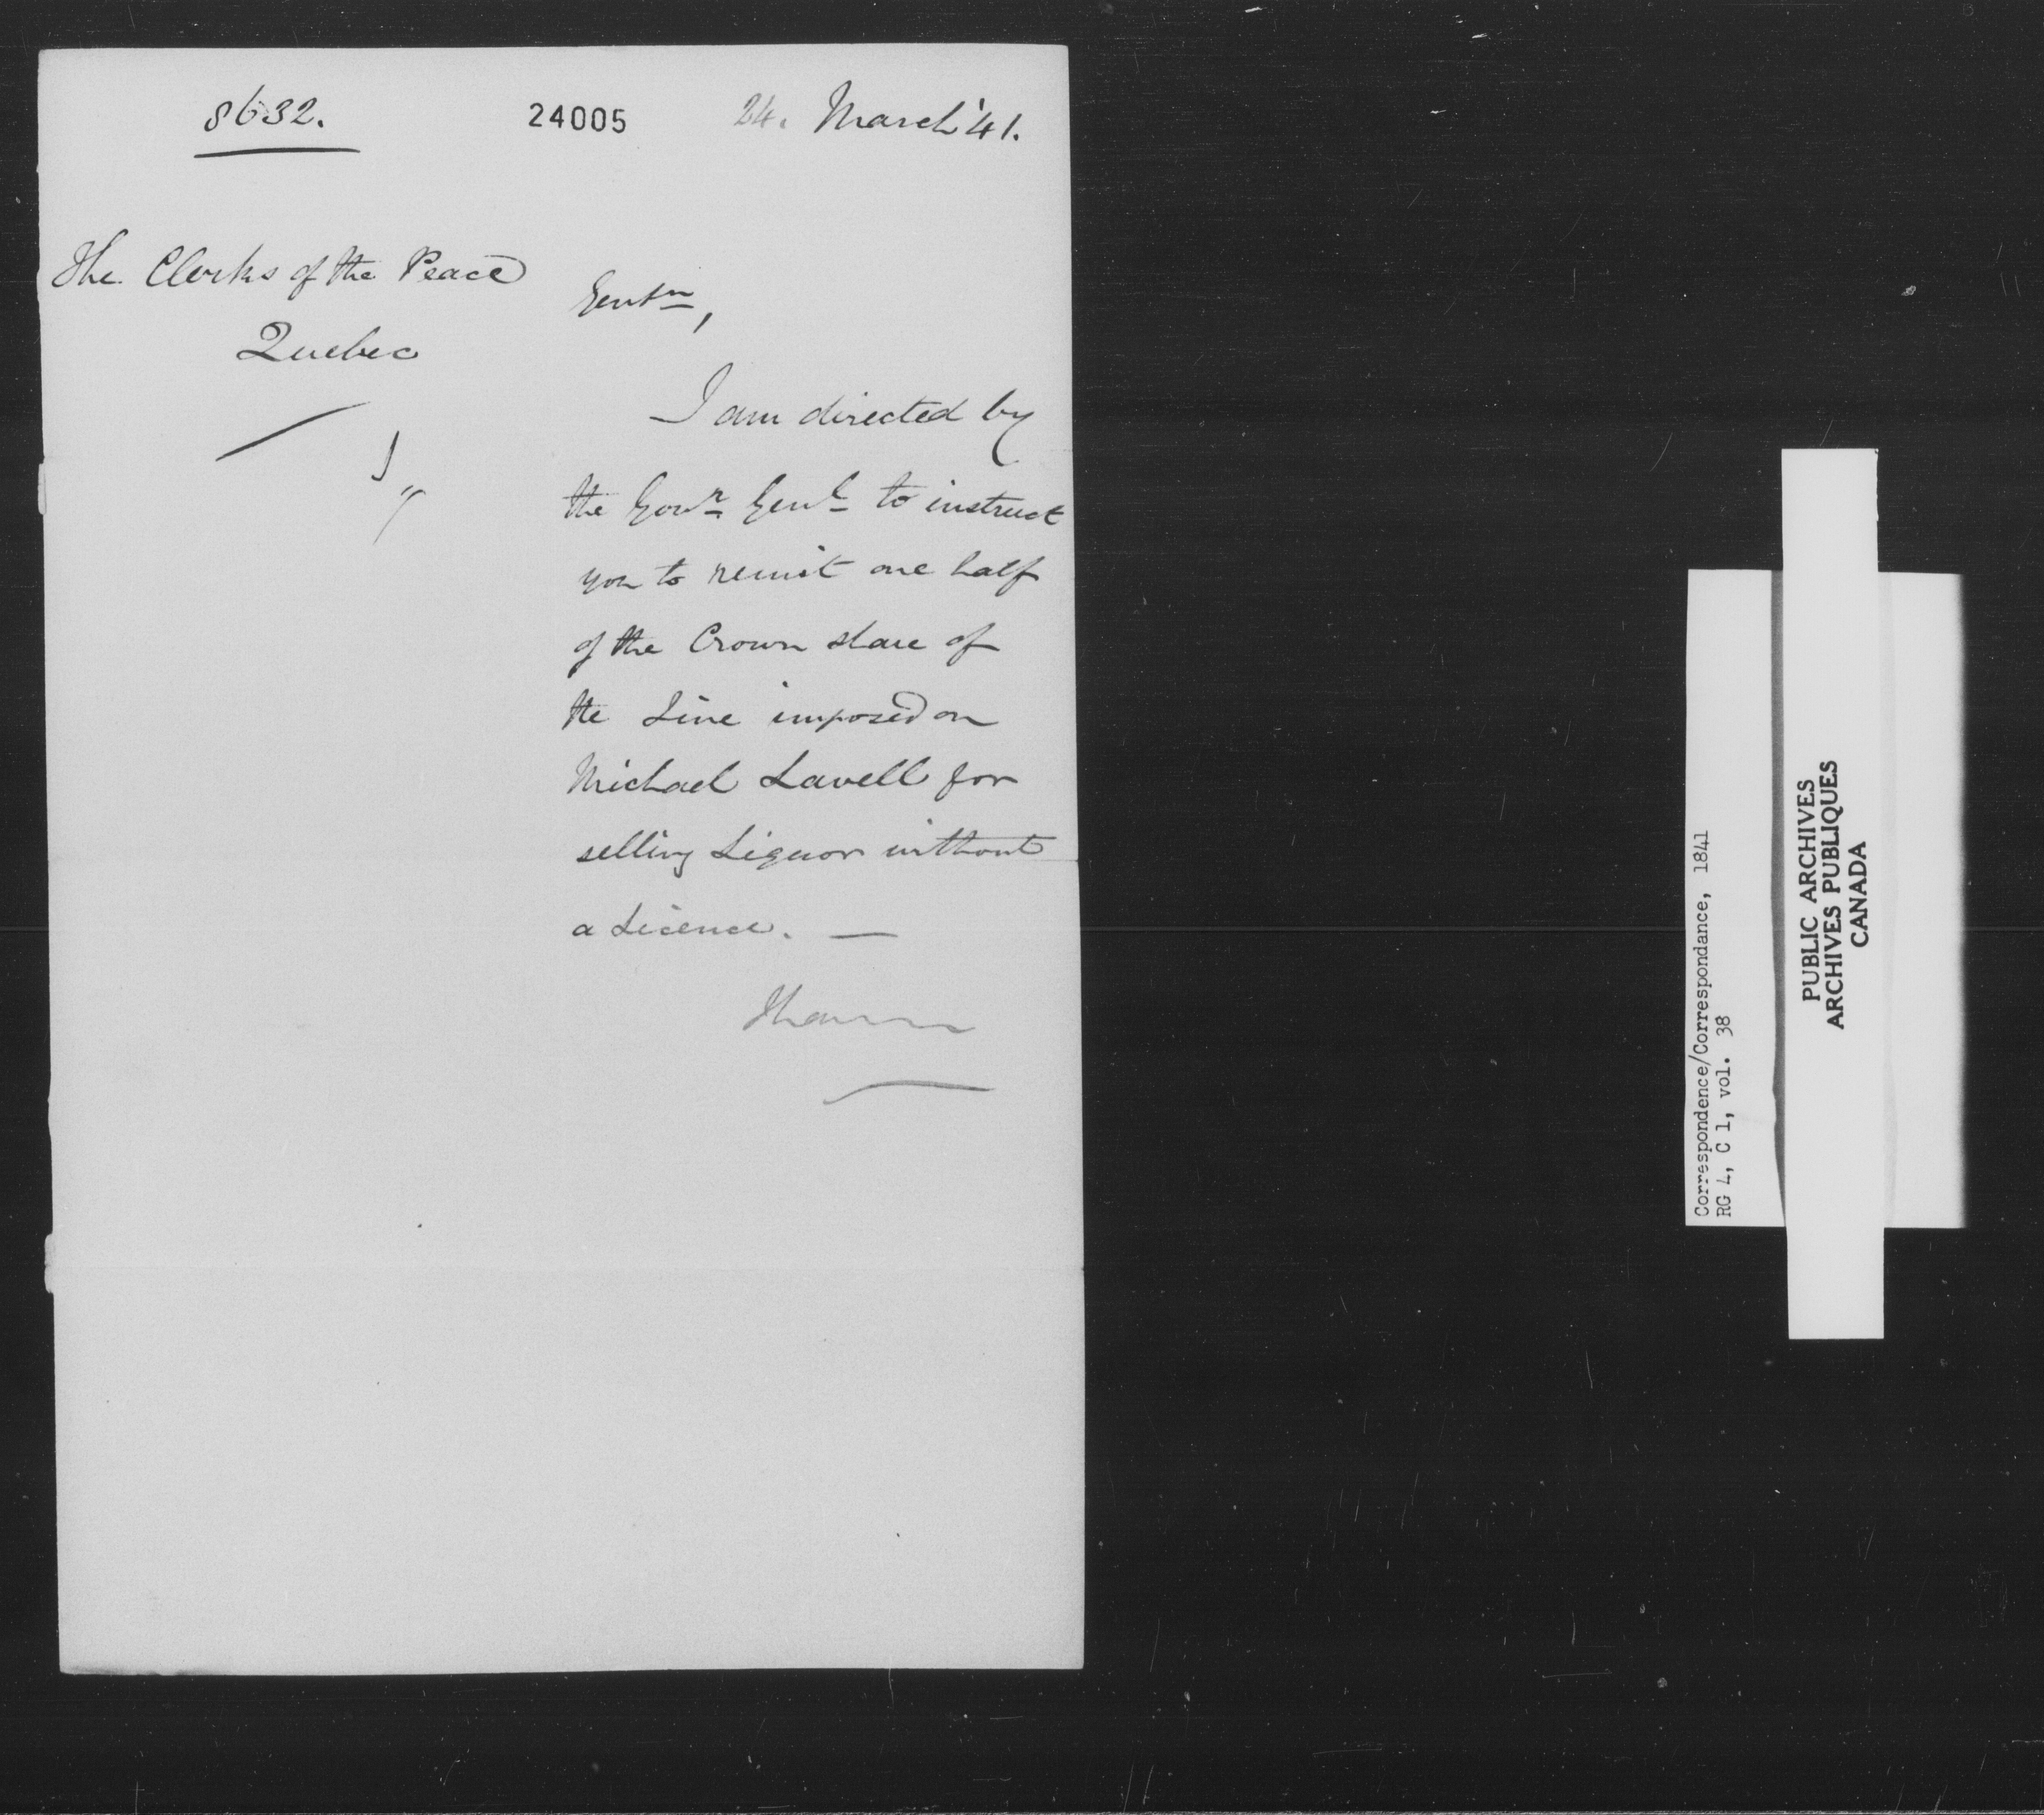 8632.
24005
24. March '41.
The Clerks of the Peace
Quebec
Gentn,
I am directed by
the Govr Genl to instruct
you to remit one half
of the Crown share of
the Fine imposed on
Michael Lavell for
selling Liquor without
a Licence. —
Correspondence/Correspondance, 1841
RG 4, C 1, vol. 38
PUBLIC ARCHIVES
ARCHIVES PUBLIQUES
CANADA